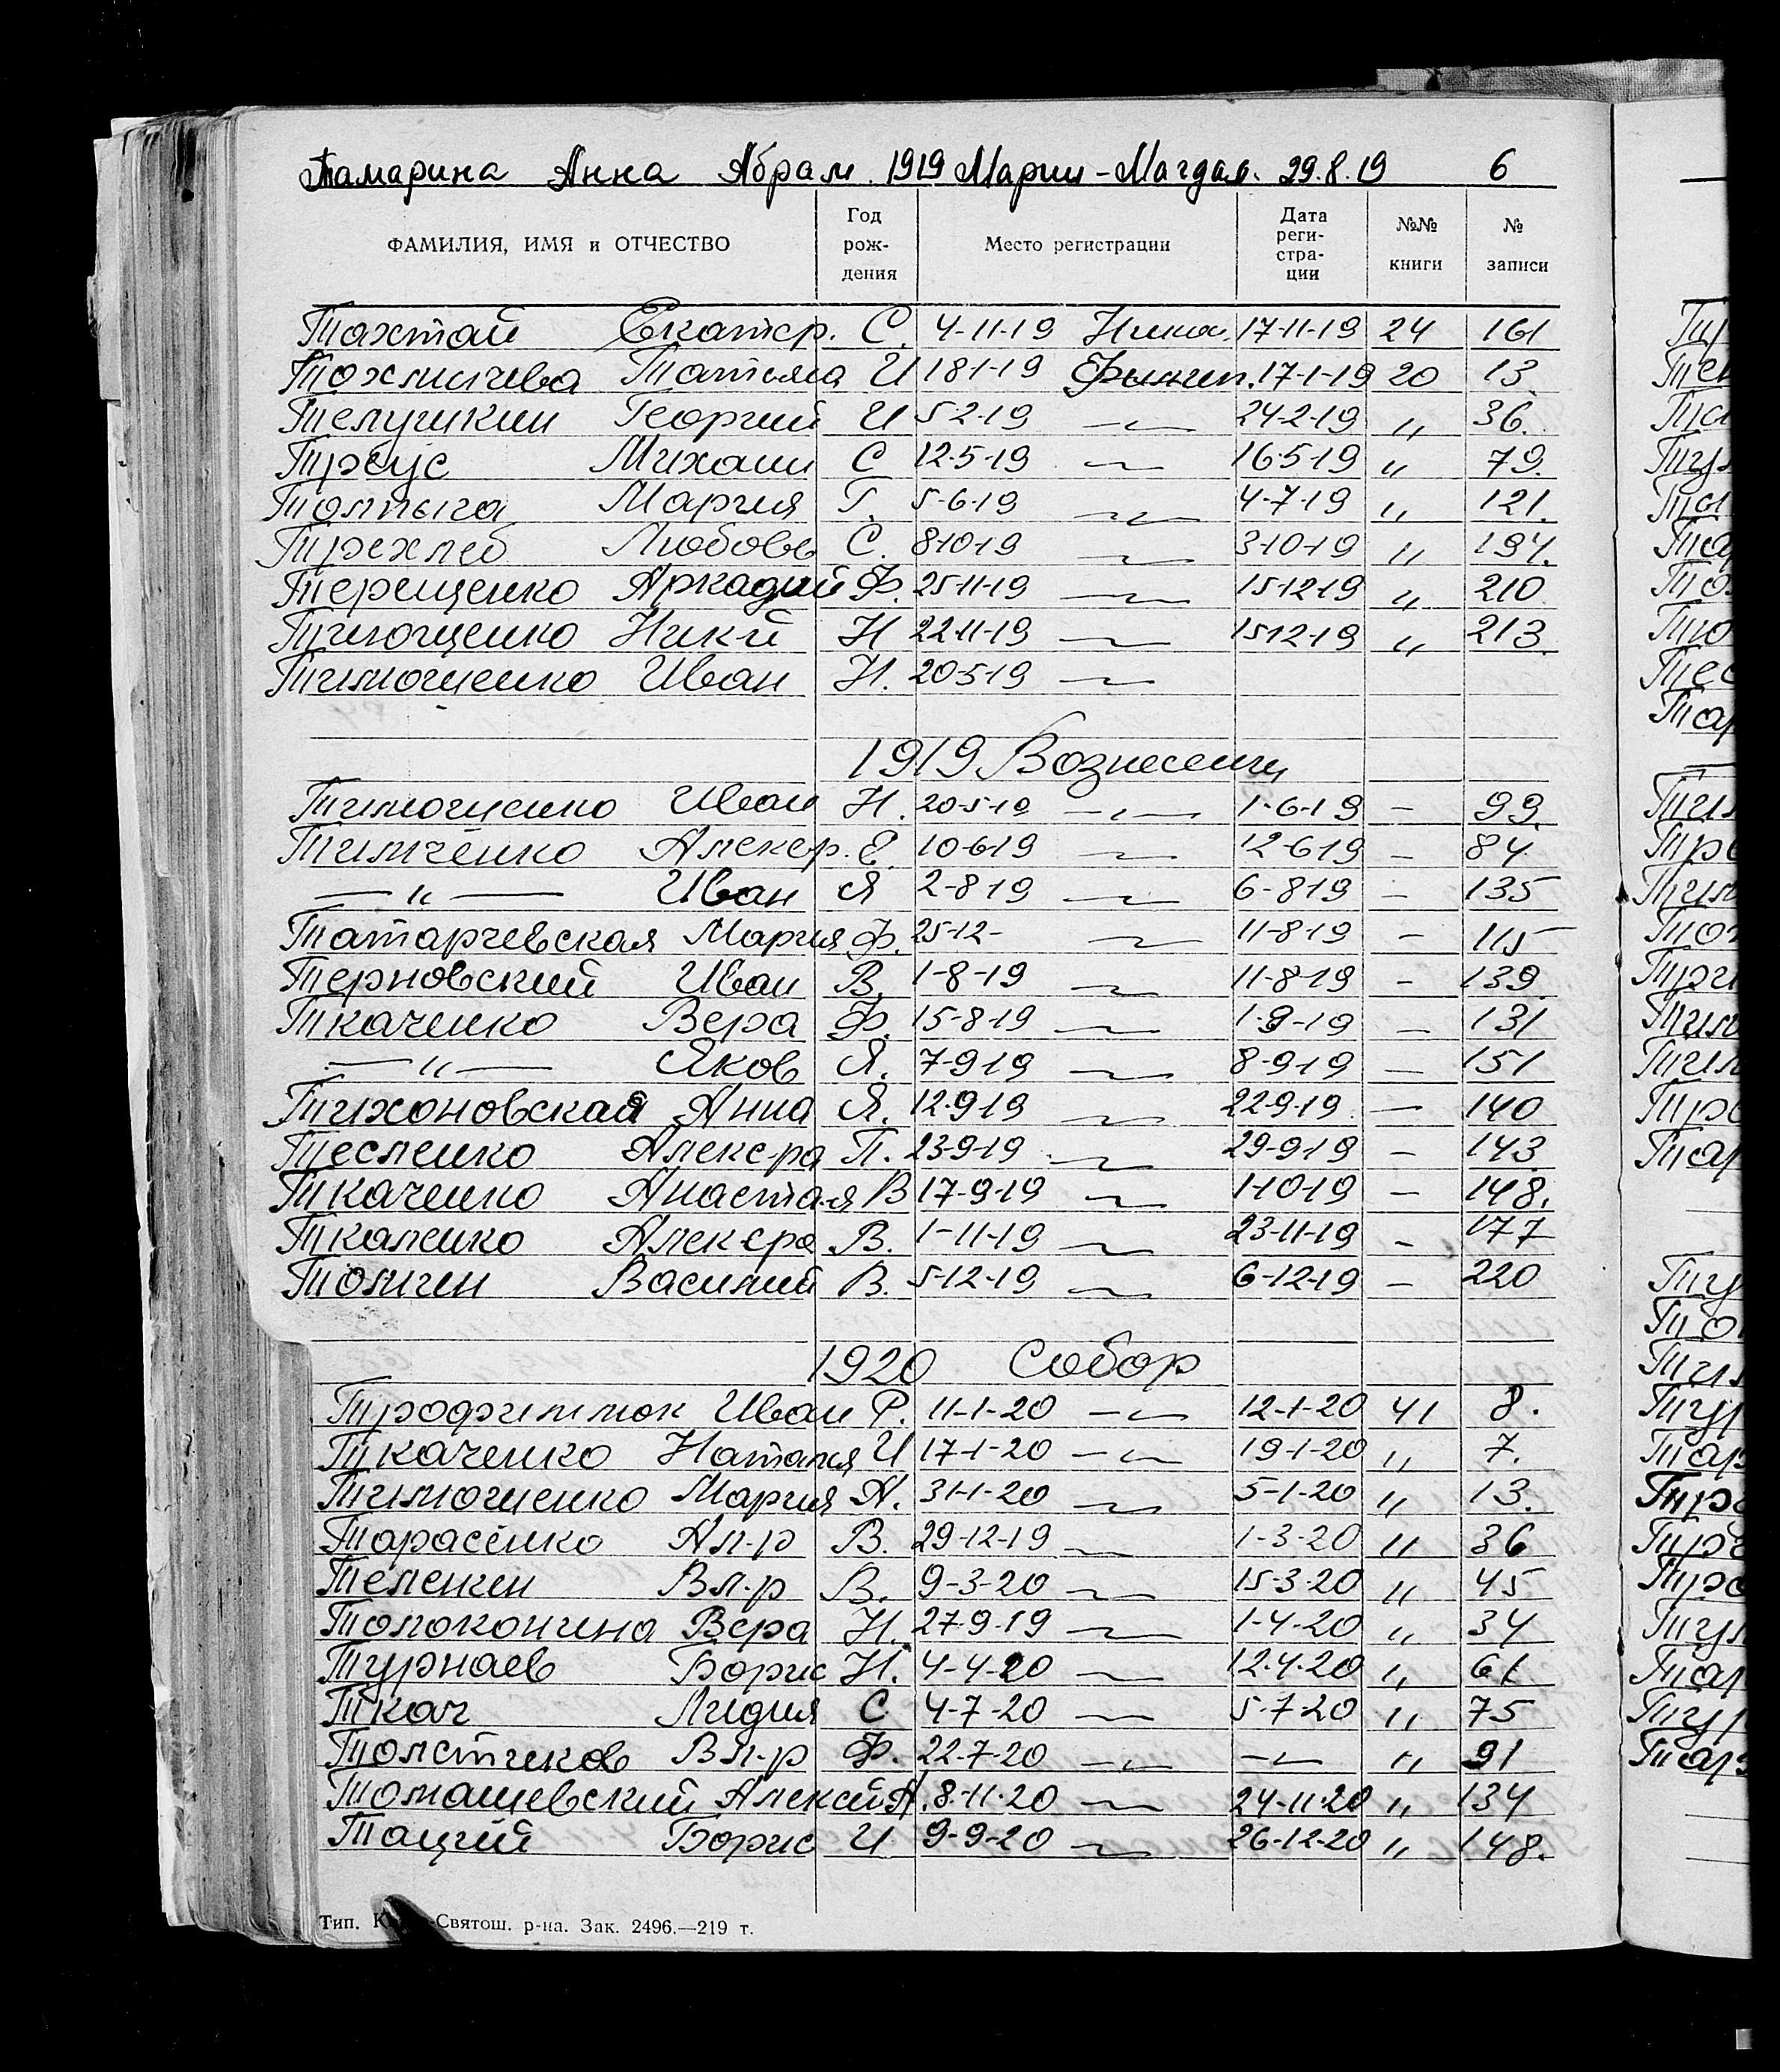 Тамарина Анна Абрам. 1919 Марии-Магдал. 29.8.19 6
ФАМИЛИЯ, ИМЯ и ОТЧЕСТВО Год рождения Место регистрации Дата регистрации №№ книги № записи
Тахтай Екатер. С. 4-11-19 Никол. 17-11-19 24 161
Татьяна И 18-1-19 17-1-19 20 13
Телушкин Георгий И 5-2-19 —〃— 24-2-19 〃 36.
Михаил С 12-5-19 — 16-5-19 〃 79.
Толпыга Мария Г. 5-6-19 — 4-7-19 〃 121.
Трехлеб Любовь С. 8-10-19 — 3-10-19 〃 194.
Терещенко Аркадий Ф. 25-11-19 — 15-12-19 〃 210
Тимощенко Ник-й Н 22-11-19 — 15-12-19 〃 213.
Тимощенко Иван Н. 20-5-19 —
1919 Вознесенск
Тимощенко Иван Н. 20-5-19 —〃— 1-6-19 — 99.
Тимченко Алекср. Е. 10-6-19 — 12-6-19 — 84.
— 〃 — Иван Я 2-8-19 — 6-8-19 — 135
Татарчевская Мария Ф. 25-12- — 11-8-19 — 115
Терновский Иван В. 1-8-19 — 11-8-19 — 139
Ткаченко Вера Ф. 15-8-19 — 1-9-19 — 131
— 〃 — Яков Я. 7-9-19 — 8-9-19 — 151
Тихоновская Анна Я. 12-9-19 — 22-9-19 — 140
Тесленко Алекс-ра П. 23-9-19 — 29-9-19 — 143
Ткаченко Анаста-я В 17-9-19 — 1-10-19 — 148.
Ткаленко Алексра В. 1-11-19 — 23-11-19 — 177
Толчен Василий В. 5-12-19 — 6-12-19 — 220
1920 Собор
Трофимлюк Иван Р. 11-1-20 —〃— 12-1-20 41 8.
Ткаченко Наталия И 17-1-20 —〃— 19-1-20 〃 7.
Тимощенко Мария А. 31-1-20 — 5-1-20 〃 13.
Тарасенко Ал-р В. 29-12-19 — 1-3-20 〃 36
Теленин Вл-р В. 9-3-20 — 15-3-20 〃 45
Толоконина Вера Н. 27-9-19 — 1-4-20 〃 34
Турнаев Борис Н. 4-4-20 — 12-4-20 〃 61
Ткач Лидия С 4-7-20 — 5-7-20 〃 75
Толстиков Вл-р Ф. 22-7-20 —〃— —〃— 〃 91
Томашевский Алексей А. 8-11-20 — 24-11-20 〃 134
Тацый Борис И 9-9-20 — 26-12-20 〃 148.
Тип. -Святош. р-на. Зак. 2496.—219 т.